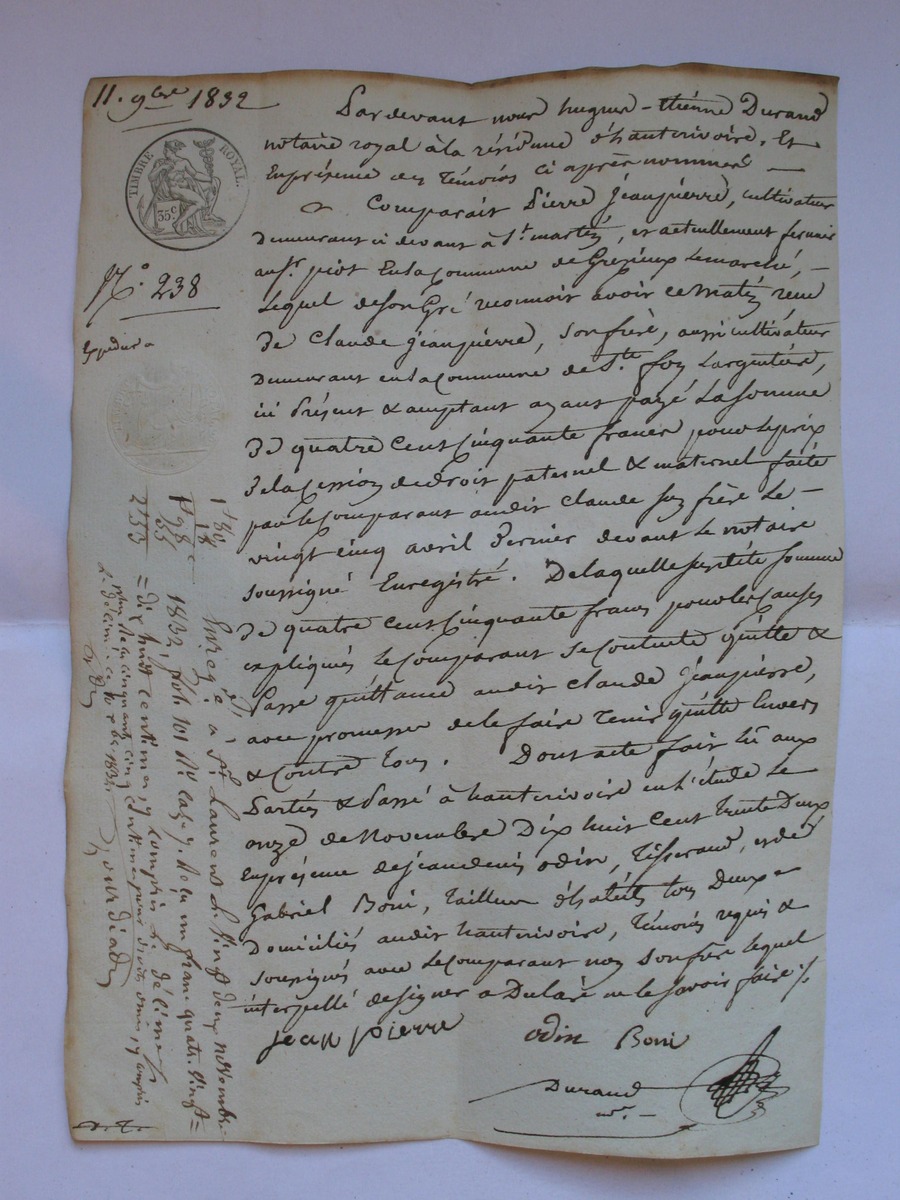 11. 9bre 1832
TIMBRE ROYAL.
35c
N.° 238
Expédié
Pardevant nous hugues-étienne Durand
notaire royal à la résidence d'hauterivoire, Et
En présence des Témoins ci après nommés —
Comparait Pierre Jeanpierre, cultivateur
Demeurant ci devant à St. martin, et actuellement fermier
au Sr. piot En la Commune de Grézieux Le marché, —
Lequel de Son Gré reconnoit avoir ce Matin recu
De Claude Jeanpierre, Son frère, aussi cultivateur
Demeurant en la Commune de Ste. foy Largentière,
ici Présent & acceptant ayant payé La Somme
De quatre Cent Cinquante francs pour le prix
De la Cession de droit paternel & maternel faite
par le Comparant audit Claude Son frère Le —
vingt cinq avril Dernier devant Le notaire
soussigné Enregistré. De laquelle Susdite Somme
De quatre Cent Cinquante francs pour les Causes
expliqués Le Comparant Se Contente quitte &
Passe quittance audit Claude Jeanpierre,
avec promesse de le faire Tenir quitte Envers
& Contre Tous. Dont acte fait lû aux
Parties & Passé à hauterivoire en L'étude Le
onze de Novembre Dix huit Cent trente Deux
En présence de jean denis odin, Tisserand, et de
Gabriel Boni, Tailleur d'habits tous Deux
Domiciliés audit hauterivoire, Témoins requis &
soussignés avec Le Comparant non Son frère Lequel
interpellé de signer a Déclaré ne le savoir faire ./.
jean pierre
odin Boni
Durand
nre
1 80
18
1 98 c
55
2 53
Enregié à St Laurent le vingt deux novembre
1832, fol. 101 Rº Case 7. Reçu un franc quatre vingt =
= dix huit centimes, y compris le décime
plus cinquante cinq centimes pour droit omis, y compris
le décime, ce 10 Xbre 1832.